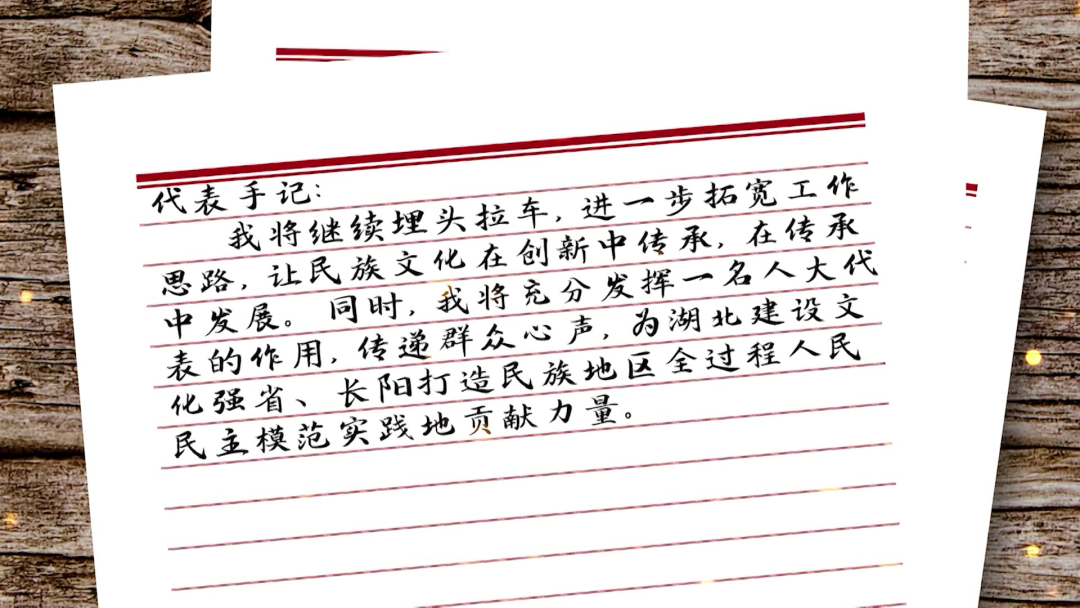 代表手记：
我将继续埋头拉车，进一步拓宽工作
思路，让民族文化在创新中传承，在传承
中发展。同时，我将充分发挥一名人大代
表的作用，传递群众心声，为湖北建设文
化强省、长阳打造民族地区全过程人民
民主模范实践地贡献力量。